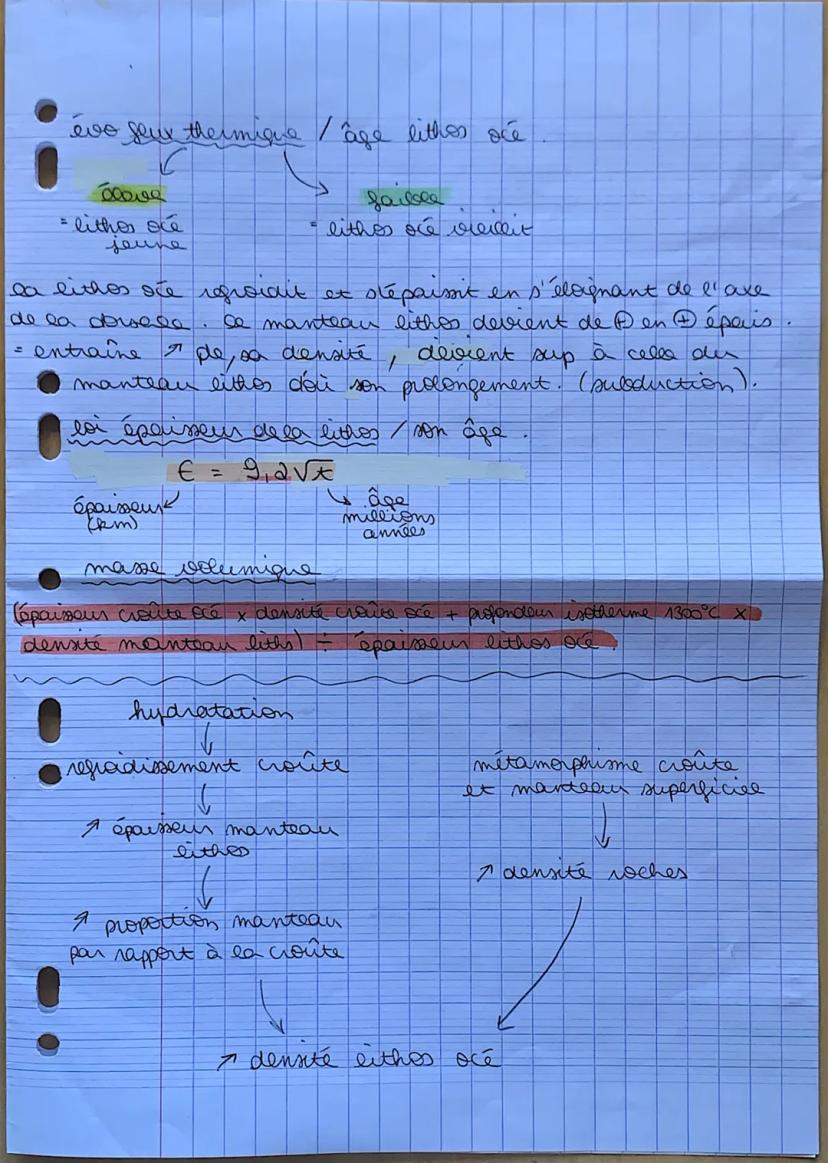 évo flux thermique / âge lithos océ.
élevé
faible
= lithos océ jeune
= lithos océ vieillit
la lithos océ refroidit et s'épaissit en s'éloignant de l'axe
de la dorsale. Le manteau lithos devient de ⊕ en ⊕ épais.
= entraîne ↗ de, sa densité, devient sup à celle du
manteau lithos d'où son prolongement. (subduction).
loi épaisseur de la lithos / son âge.
€ = 9,2√t
épaisseur (km)
âge millions années
masse volumique
(épaisseur croûte océ x densité croûte océ + profondeur isotherme 1300°C x
densité manteau liths) ÷ épaisseur lithos océ
hydratation
refroidissement croûte
métamorphisme croûte
et manteau superficiel
↗ épaisseur manteau
lithos
↗ densité roches
↗ proportion manteau
par rapport à la croûte
↗ densité lithos océ